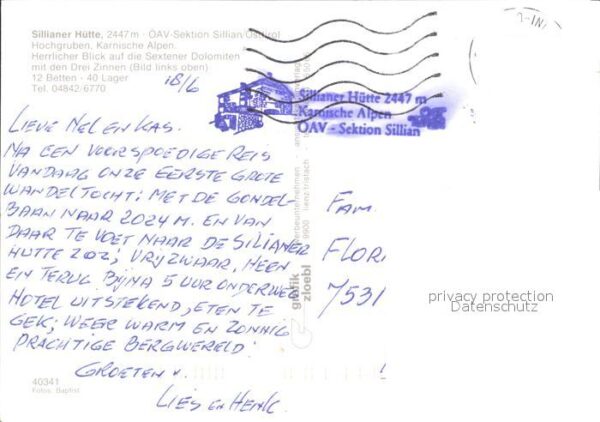 Sillianer Hütte, 2447 m - ÖAV-Sektion Sillian/Osttirol
Hochgruben, Karnische Alpen.
Herrlicher Blick auf die Sextener Dolomiten
mit den Drei Zinnen (Bild links oben)
12 Betten - 40 Lager
Tel. 04842/6770
18/6
Sillianer Hütte 2447 m
Karnische Alpen
ÖAV - Sektion Sillian
LIEVE NEL EN KAS.
NA EEN VOORSPOEDIGE REIS
VANDAAG ONZE EERSTE GROTE
WANDELTOCHT: MET DE GONDEL-
BAAN NAAR 2024 M. EN VAN
DAAR TE VOET NAAR DE SILIANER
HUTTE ZOZ; VRIJ ZWAAR, HEEN
EN TERUG BIJNA 5 UUR ONDERWEG
HOTEL UITSTEKEND, ETEN TE
GEK; WEER WARM EN ZONNIG
PRACHTIGE BERGWERELD.
GROETEN v.
LIES EN HENK.
FAM.
FLORI
7531
grafik
zloebl
9900 lienz/tristach
privacy protection
Datenschutz
40341
Fotos: Baptist